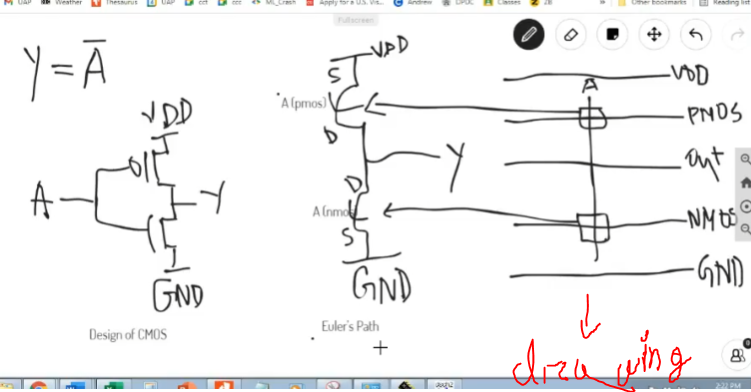 UAP
Weather
Thesaurus
UAP
cct
ccc
ML_Crash
Apply for a U.S. Vis...
Andrew
DPDC
Classes
ZB
Other bookmarks
Reading list
Fullscreen
Y = A̅
VDD
A
Y
GND
Design of CMOS
VDD
S
A (pmos)
D
Y
D
A (nmo
S
GND
Euler's Path
A
VDD
PMOS
Out
NMOS
GND
drawing
2:22 PM